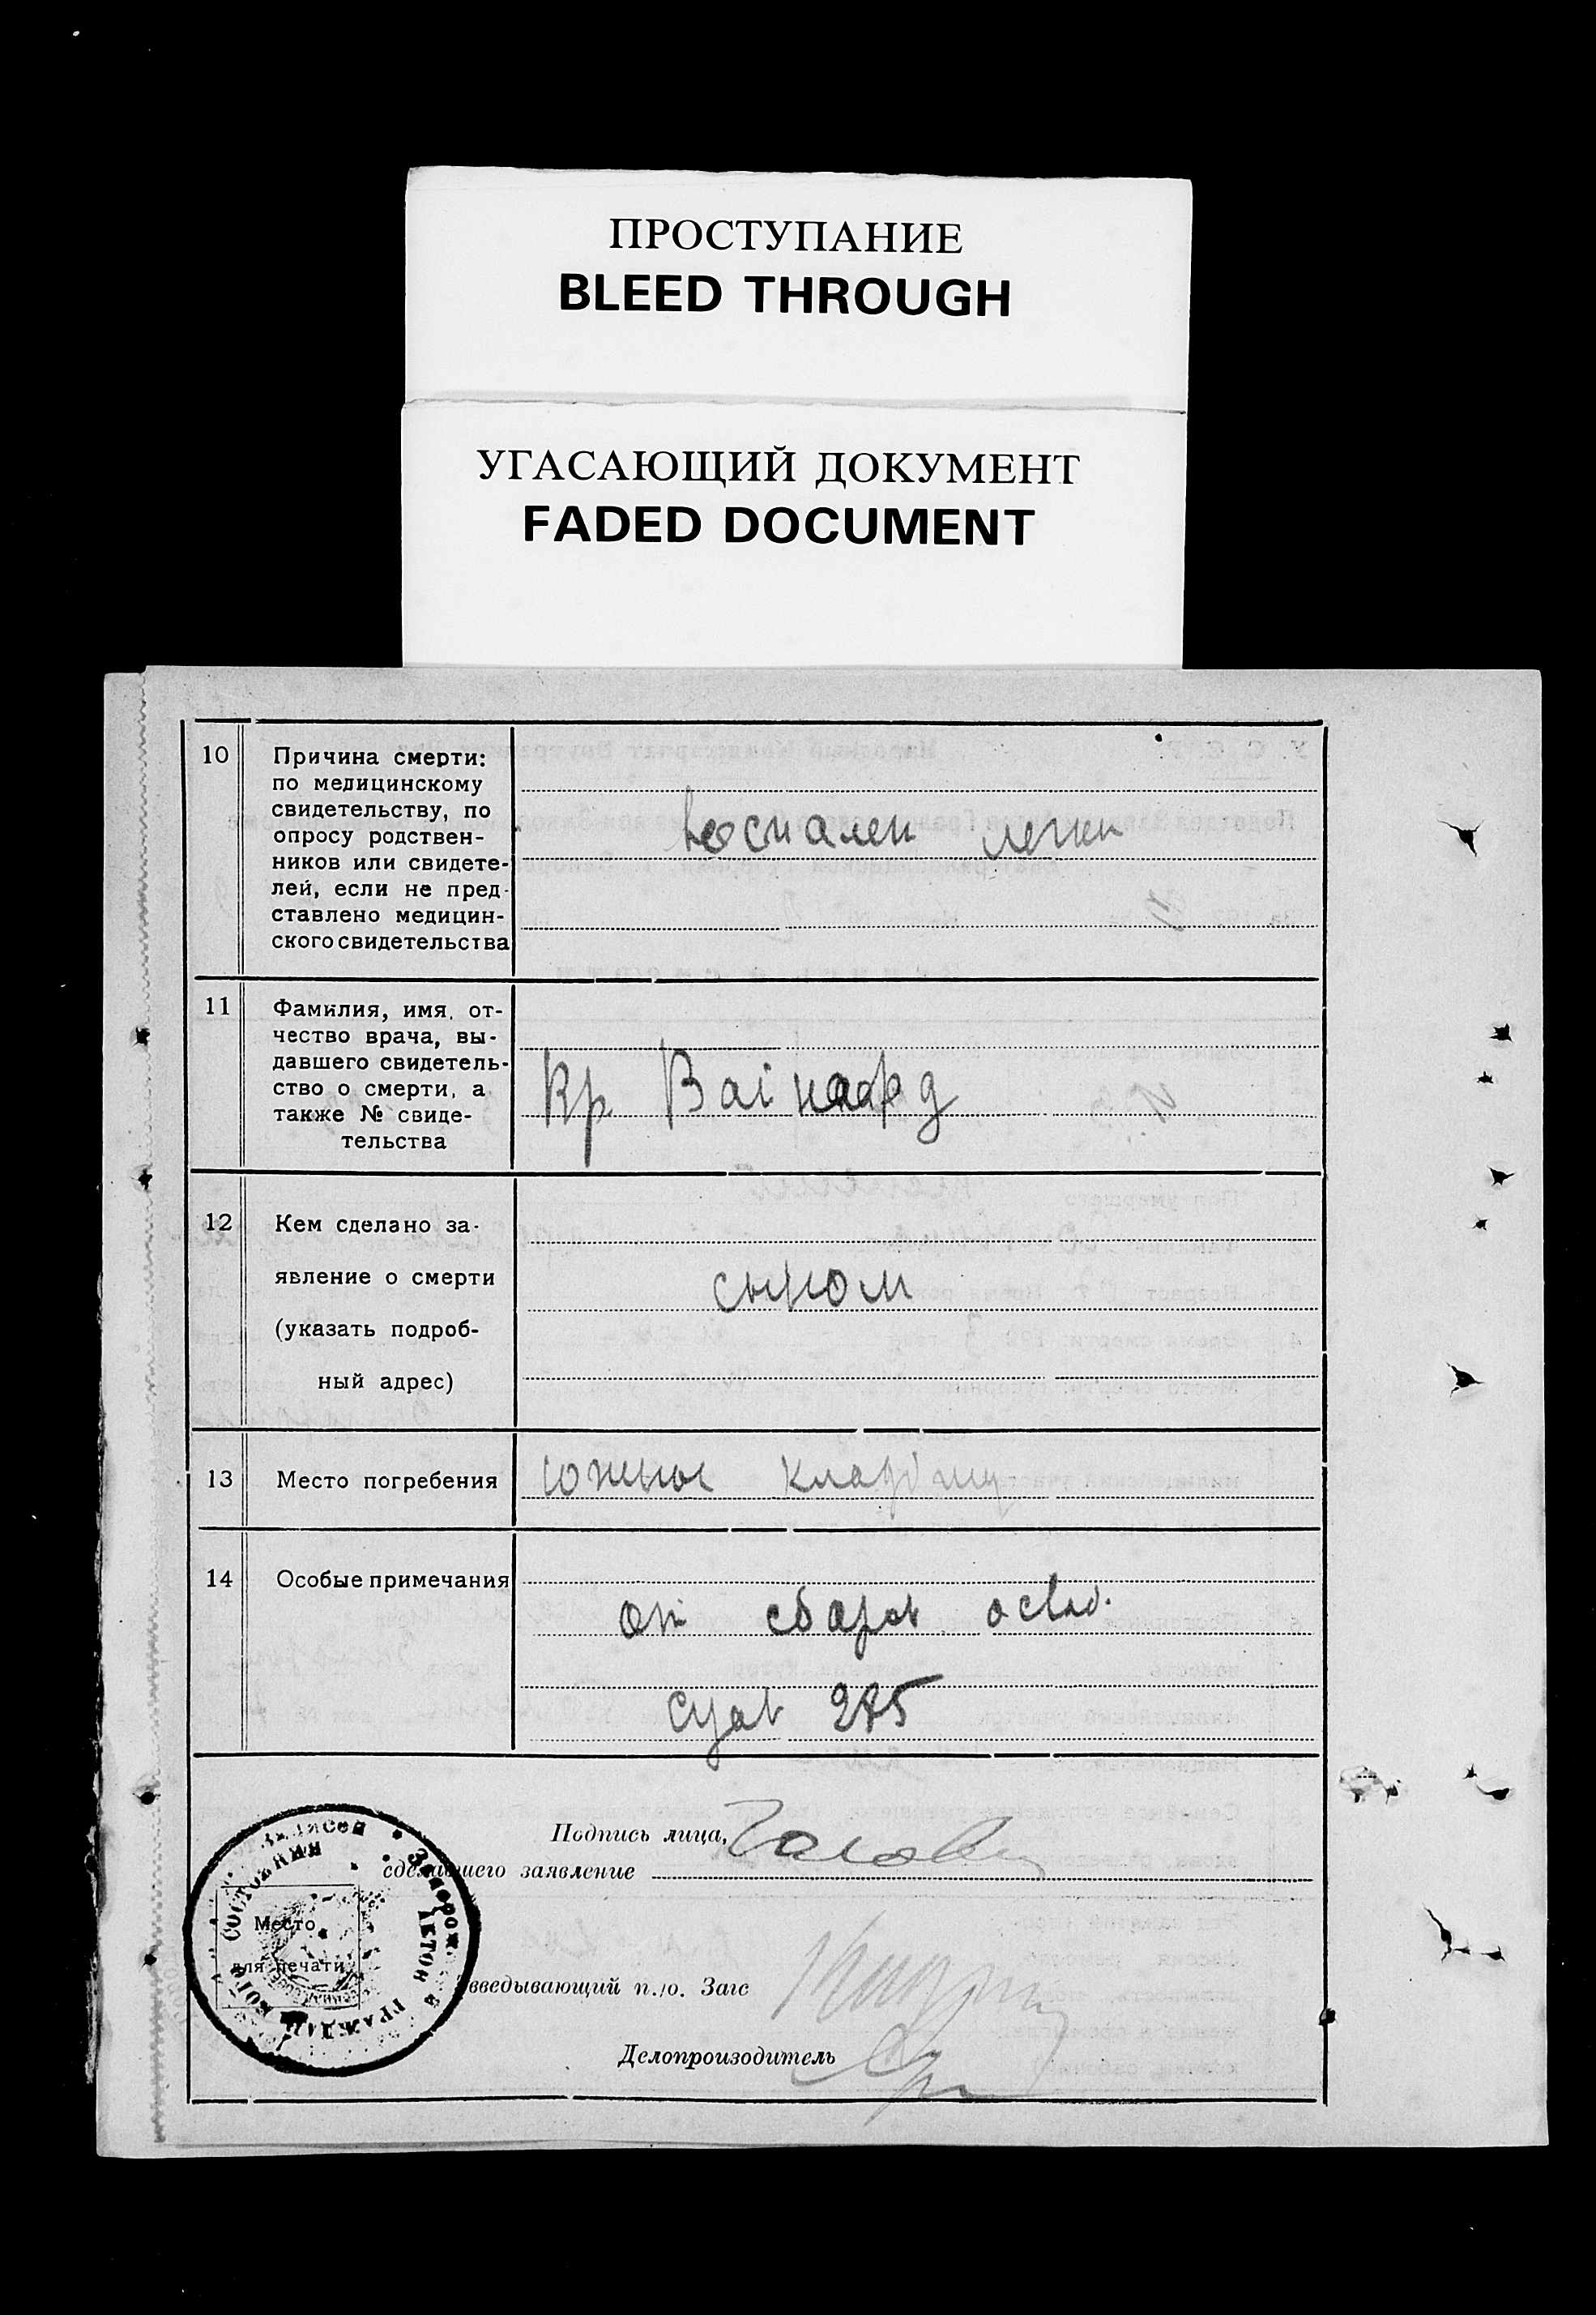 ПРОСТУПАНИЕ
BLEED THROUGH
УГАСАЮЩИЙ ДОКУМЕНТ
FADED DOCUMENT
10
Причина смерти:
по медицинскому
свидетельству, по
опросу родствен-
ников или свидете-
лей, если не пред-
ставлено медицин-
ского свидетельства
воспален легки
11
Фамилия, имя, от-
чество врача, вы-
давшего свидетель-
ство о смерти, а
также № свиде-
тельства
Вр
12
Кем сделано за-
явление о смерти
(указать подроб-
ный адрес)
сыном
13
Место погребения
южное
14
Особые примечания
от сбора освоб.
285
Подпись лица,
сделавшего заявление
Место
для печати
введывающий п./о. Загс
Делопроизодитель